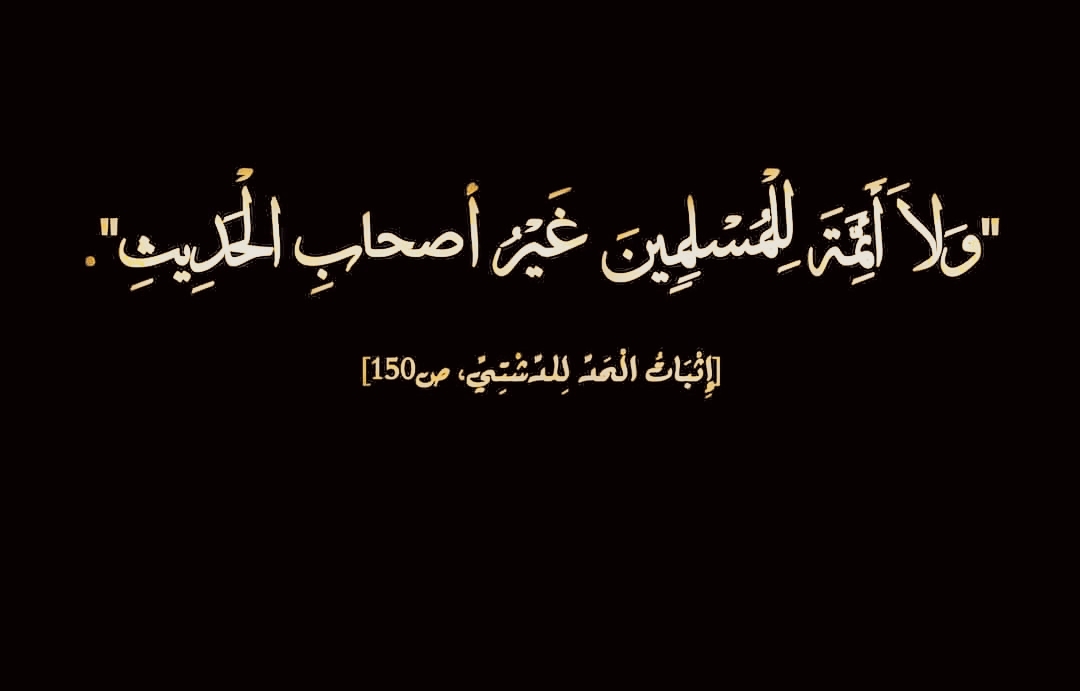 "وَلاَ أَئِمَّةَ لِلْمُسْلِمِينَ غَيْرُ أصحابِ الْحَدِيثِ".
[إِثْبَاتُ الْحَدِّ لِلدَّشْتِيِّ، ص150]